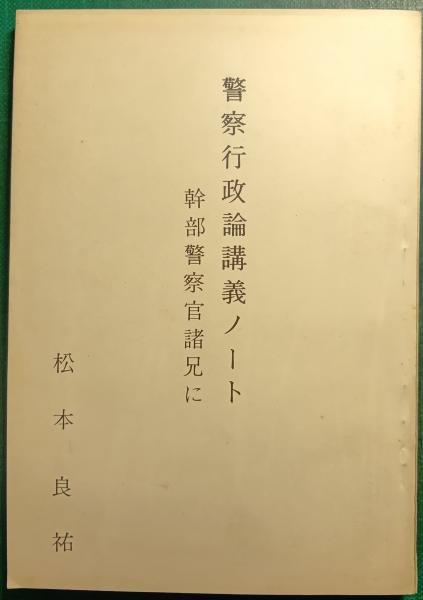 警察行政論講義ノート
幹部警察官諸兄に
松本良祐